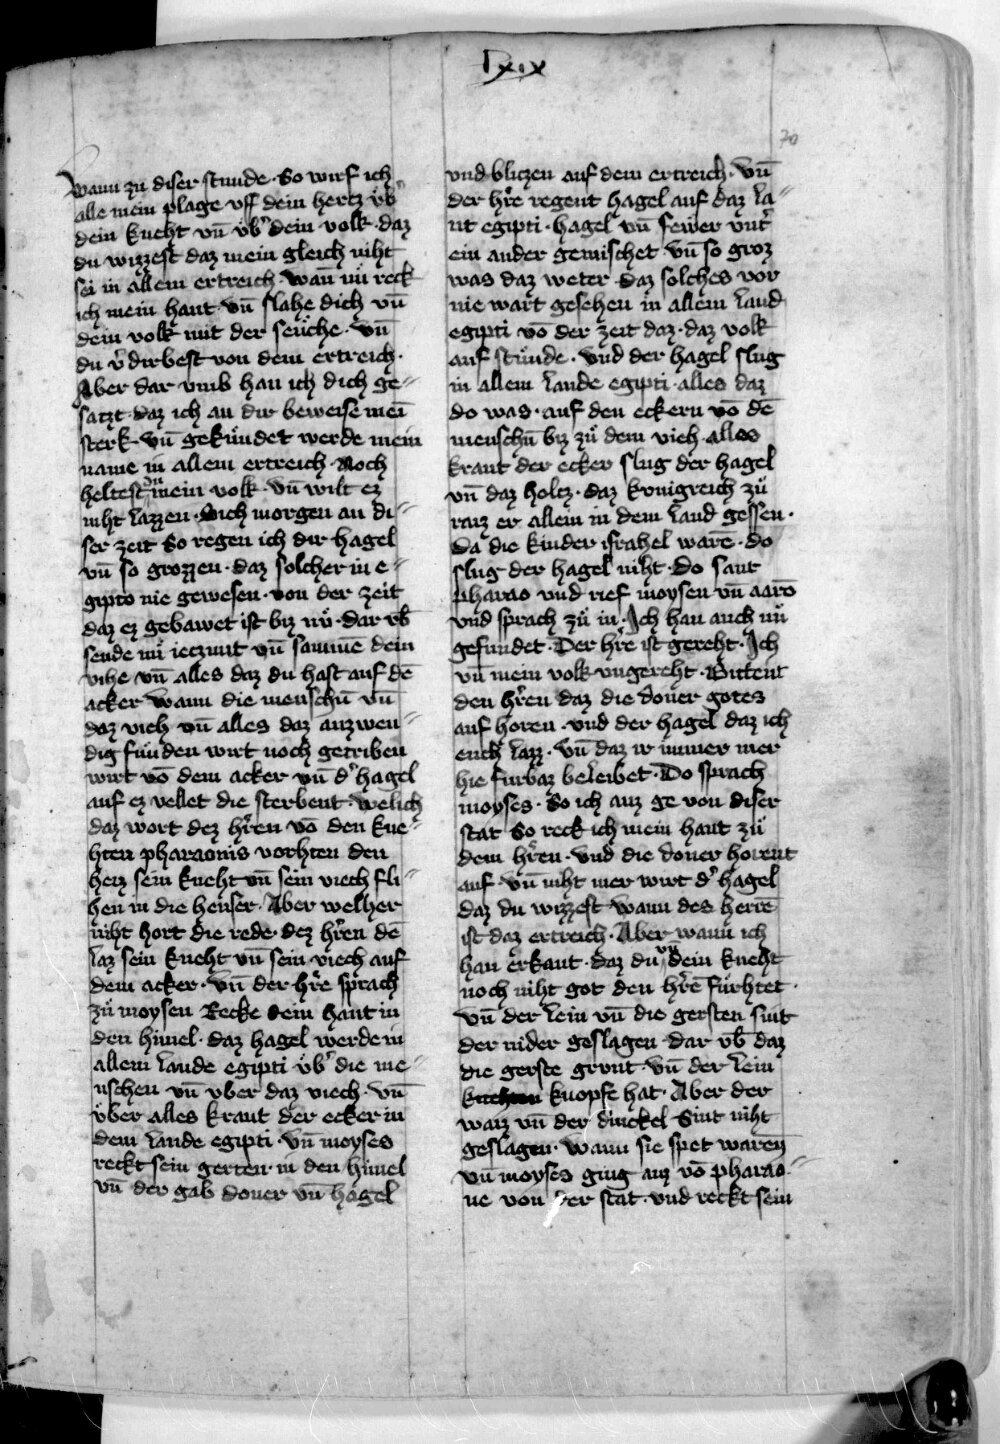 lxix
70
wann zu diser stunde · So wirf ich
alle mein plage vff dein hertz vb̾
dein kneht vn̄ vb̾ dein volk · daz
du wizzest daz mein gleich niht
sei in allem ertreich · wan̄ nů reck
ich mein hant · vn̄ slahe dich vn̄
dein volk mit der seuͤche · vn̄
du v̾dirbest von dem ertreich ·
Aber dar vmb han ich dich ge-
satzt · daz ich an dir beweise mei̅
sterk · vn̄ gekuͤndet werde mein
name in allem ertreich · Noch
heltest du mein volk · vn̄ wilt ez
niht lazzen · Sich morgen an di-
ser zeit So regen ich dir hagel
vn̄ so grozzen · daz solcher in e-
gipto nie gewesen · von der zeit
daz ez gebawet ist biz nů · dar vb̄
sende nů ieczunt vn̄ samme̅ dein
vihe vn̄ alles daz du hast auf de̅
acker wann die menschn̄ vn̄
daz vieh vn̄ alles daz auzwen-
dig funden wirt noch getriben
wirt vo̅ dem acker vn̄ d̾ hagel
auf ez vellet die sterbent · welich
daz wort dez hr̾en vo̅ den kne-
hten pharaonis vorhten den
hiez sein kneht vn̄ sein viech fli-
hen in die heuser · Aber welher
niht hort die rede · dez hr̾en de̅
laz sein kneht vn̄ sein viech auf
dem acker · vn̄ der hr̾e sprach
zů moysen Recke dein hant in
den himel · daz hagel werde in
allem lande egipti · vb̾ die me-
nschen vn̄ vber daz viech · vn̄
vber alles kraut der ecker in
dem lande egipti · vn̄ moyses
reckt sein gerten in den himel
vn̄ der gab doner vn̄ hagel
vnd bliczen auf dem ertreich · vn̄
der hr̾e regent hagel auf daz la-
nt egipti · hagel vn̄ fewer vnt̾
ein ander gemischet · vn̄ so groz
was daz weter · daz solches vor
nie wart gesehen in allem land
egipti vo̅ der zeit daz · daz volk
auf stunde · vnd der hagel slug
in allem lande egipti · alles daz
do was · auf den eckern vo̅ de̅
menschn̄ biz zů dem vieh · alles
kraut der ecker slug der hagel
vn̄ daz holtz · daz kunigreich zů
raiz er allein in dem land gessen ·
da die kinder israhel ware̅ · do
slug der hagel niht · Do sant
pharao vnd rief moysen vn̄ aaro̅
vnd sprach zů in · Ich han auch nů
gesundet · Der hr̾e ist gereht · Ich
vn̄ mein volk vngereht · Bittent
den hr̾en daz die doner gotes
auf horen · vnd der hagel daz ich
euch lazz · vn̄ daz ir nimer mer
hie furbaz beleibet · Do sprach
moyses · So ich auz ge von diser
stat So reck ich mein hant zů
dem hr̾en · vnd die doner horent
auf · vn̄ niht mer wirt d̾ hagel
daz du wizzest wann des herre̅
ist daz ertreich · Aber wann ich
han erkant · daz du vn̄ dein kneht
noch niht got den hr̾e̅ fuͤrhtet ·
vn̄ der lein vn̄ die gersten sint
der nider geslagen · dar vb̄ daz
die gerste grunt · vn̄ der lein
knopfe hat · Aber der
waiz vn̄ der dinckel Sint niht
geslagen · wann sie spet waren
vn̄ moyses ging auz vo̅ pharao-
ne von der stat · vnd reckt sein